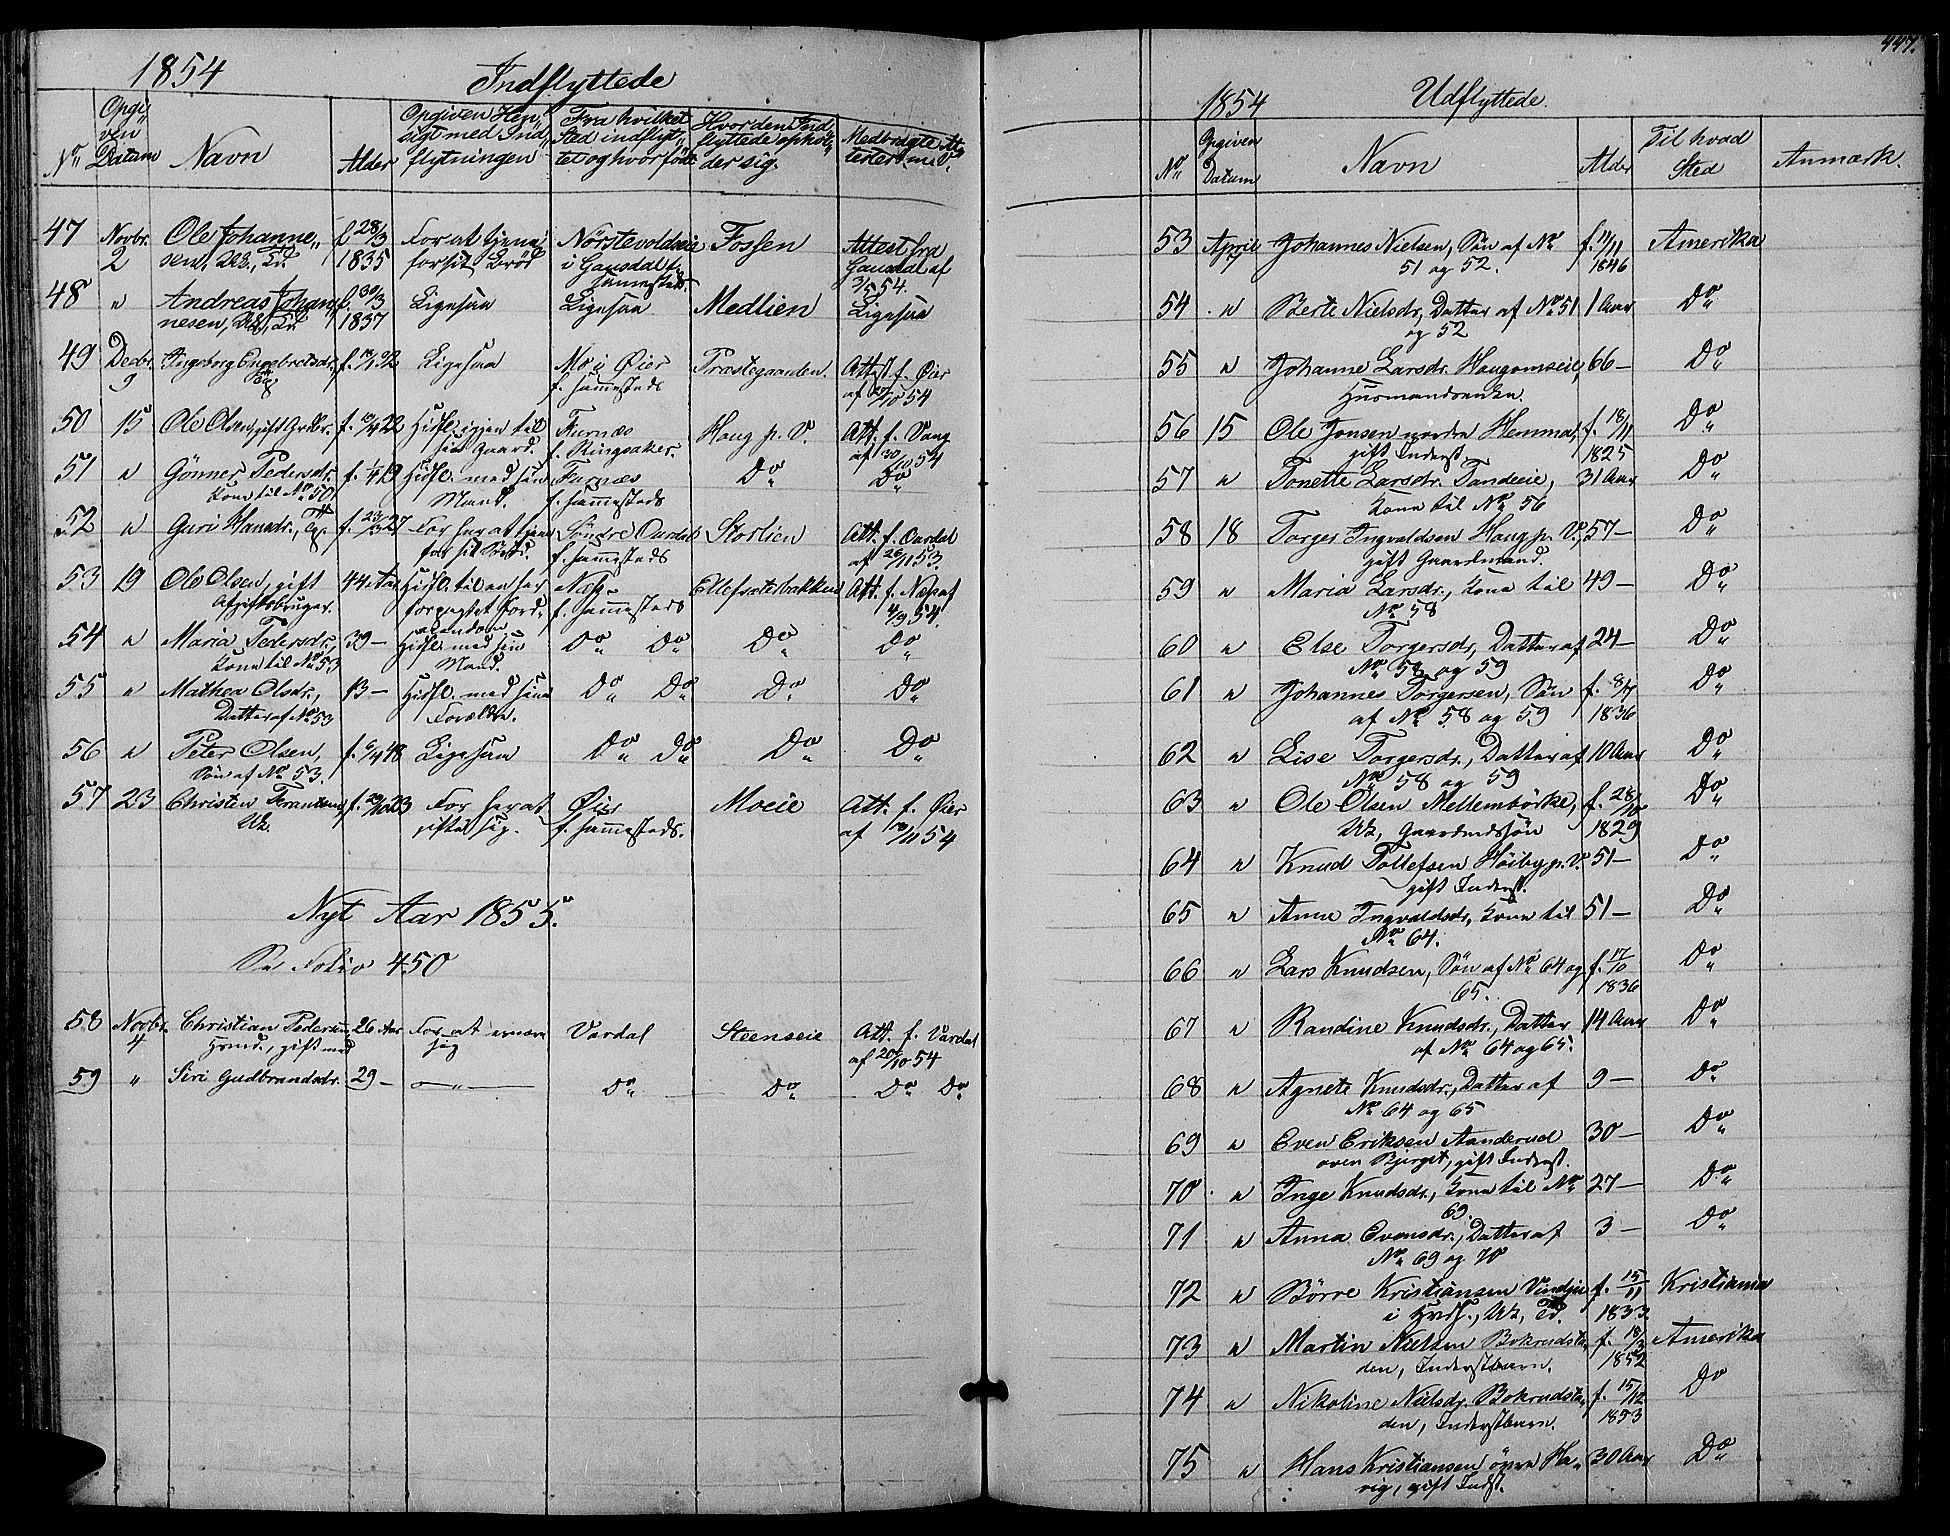 1854 Indflyttede
No Opgiven Datum Navn Alder Opgiven Hensigt med Indflytningen Fra hvilket Sted indflyttet og hvor født Hvor den Indflyttede opholder sig. Medbragte Attester m. V.
47 Novbr. 2 Ole Johannesen, f. 28/3 1835 For at tjene for sit Brød i Gausdal f. sammesteds. Fossen Attest fra Gausdal af 54.
48 " Andreas Johannesen, f. 30/3 1837 Ligesaa Ligesaa Medlien Ligesaa
49 Decbr. 9 Ingeborg Engebretsdr. Ligesaa Mo i Øier f. sammesteds Præstegaarden. Att. f. Øier af 54
50 15 Ole Olsen, gift f. 22 Hidfl. igjen til sin Gaard. Furnæs f. Ringsaker. Haug p. V. Att. f. Vang af 30/10 54
51 " Gønner Pedersdr. Kone til No 50. f. 19 Hidfl. med sin Mand. Furnæs f. sammesteds Do Do
52 " Guri Hansdr., f. 23/3 27 For her at tjene for sit Brød. Søndre Ourdal f. sammesteds Storlien Att. f. Ourdal af 26/11 53.
53 19 Ole Olsen, gift Afgiftsbruger. 44 Aar Hidfl. til en her forpagtet Jordeiendom Næs f. sammesteds Ellefsæterbakken Att. f. Næs af 4/9 54.
54 " Maria Pedersdr., Kone til No 53 39 – Hidfl. med sin Mand. Do Do Do Do
55 " Mathea Olsdr., Datter af No 53 13 – Hidfl. med sine Forældre. Do Do Do Do
56 " Peter Olsen, Søn af No 53. f. 6/4 48 Ligesaa Do Do Do Do
57 23 Christen Frandsen, Uk. f. 23 For her at gifte sig. Øier f. sammesteds. Moeie Att. f. Øier af 54
Nyt Aar 1855.
Se Folio 450
58 Novbr. 4 Christian Pedersen, gift med 26 Aar For at ernære sig Vardal Steenseie Att. f. Vardal af 20/10 54
59 " Siri Gudbrandsdr. 29 – — " — Do Do Do Do
447.
1854 Udflyttede.
No Opgiven Datum Navn Alder Til hvad Sted Anmærk.
53 April Johannes Nielsen, Søn af No 51 og 52. f. 11/11 1846 Amerika
54 " Berte Nielsdr., Datter af No 51 og 52 1 Aar Do
55 " Johanne Larsdr. Haugomseie, Husmandsenke. 66 – Do
56 15 Ole Jonsen nordre Hemma, gift Inderst. f. 18/11 1825 Do
57 " Tonette Larsdr. Tandeeie, Kone til No 56 31 Aar Do
58 18 Torger Ingvaldsen Haug p. V., gift Gaardmand. 57 – Do
59 " Maria Larsdr., Kone til No 58 49 – Do
60 " Else Torgersdr., Datter af No 58 og 59 24 – Do
61 " Johannes Torgersen, Søn af No 58 og 59 f. 8/7 1836 Do
62 " Lise Torgersdr., Datter af No 58 og 59 10 Aar Do
63 " Ole Olsen Mellembörke, Uk., Gaardmdssøn f. 28/10 1829 Do
64 " Knud Tollefsen Høiby p. V. gift Inderst. 51 – Do
65 " Anne Ingvaldsdr., Kone til No 64. 51 – Do
66 " Lars Knudsen, Søn af No 64 og 65. f. 17/10 1836 Do
67 " Randine Knudsdr., Datter af No 64 og 65. 14 Aar Do
68 " Agnete Knudsdr., Datter af No 64 og 65 9 – Do
69 " Even Eriksen Aanderud oven Bjerget, gift Inderst. 30 – Do
70 " Inge Knudsdr., Kone til No 69. 27 – Do
71 " Anna Evensdr., Datter af No 69 og 70 3 – Do
72 " Börre Kristiansen Vindju i Uk., f. 15/11 1833 Kristiania
73 " Martin Nielsen Bokrudstaden, Inderstbarn. f. 18/3 1852 Amerika
74 " Nikoline Nielsdr. Bokrudstaden, Inderstbarn. f. 15/12 1853 Do
75 " Hans Kristiansen øvre Harig, gift Indst. 30 Aar Do